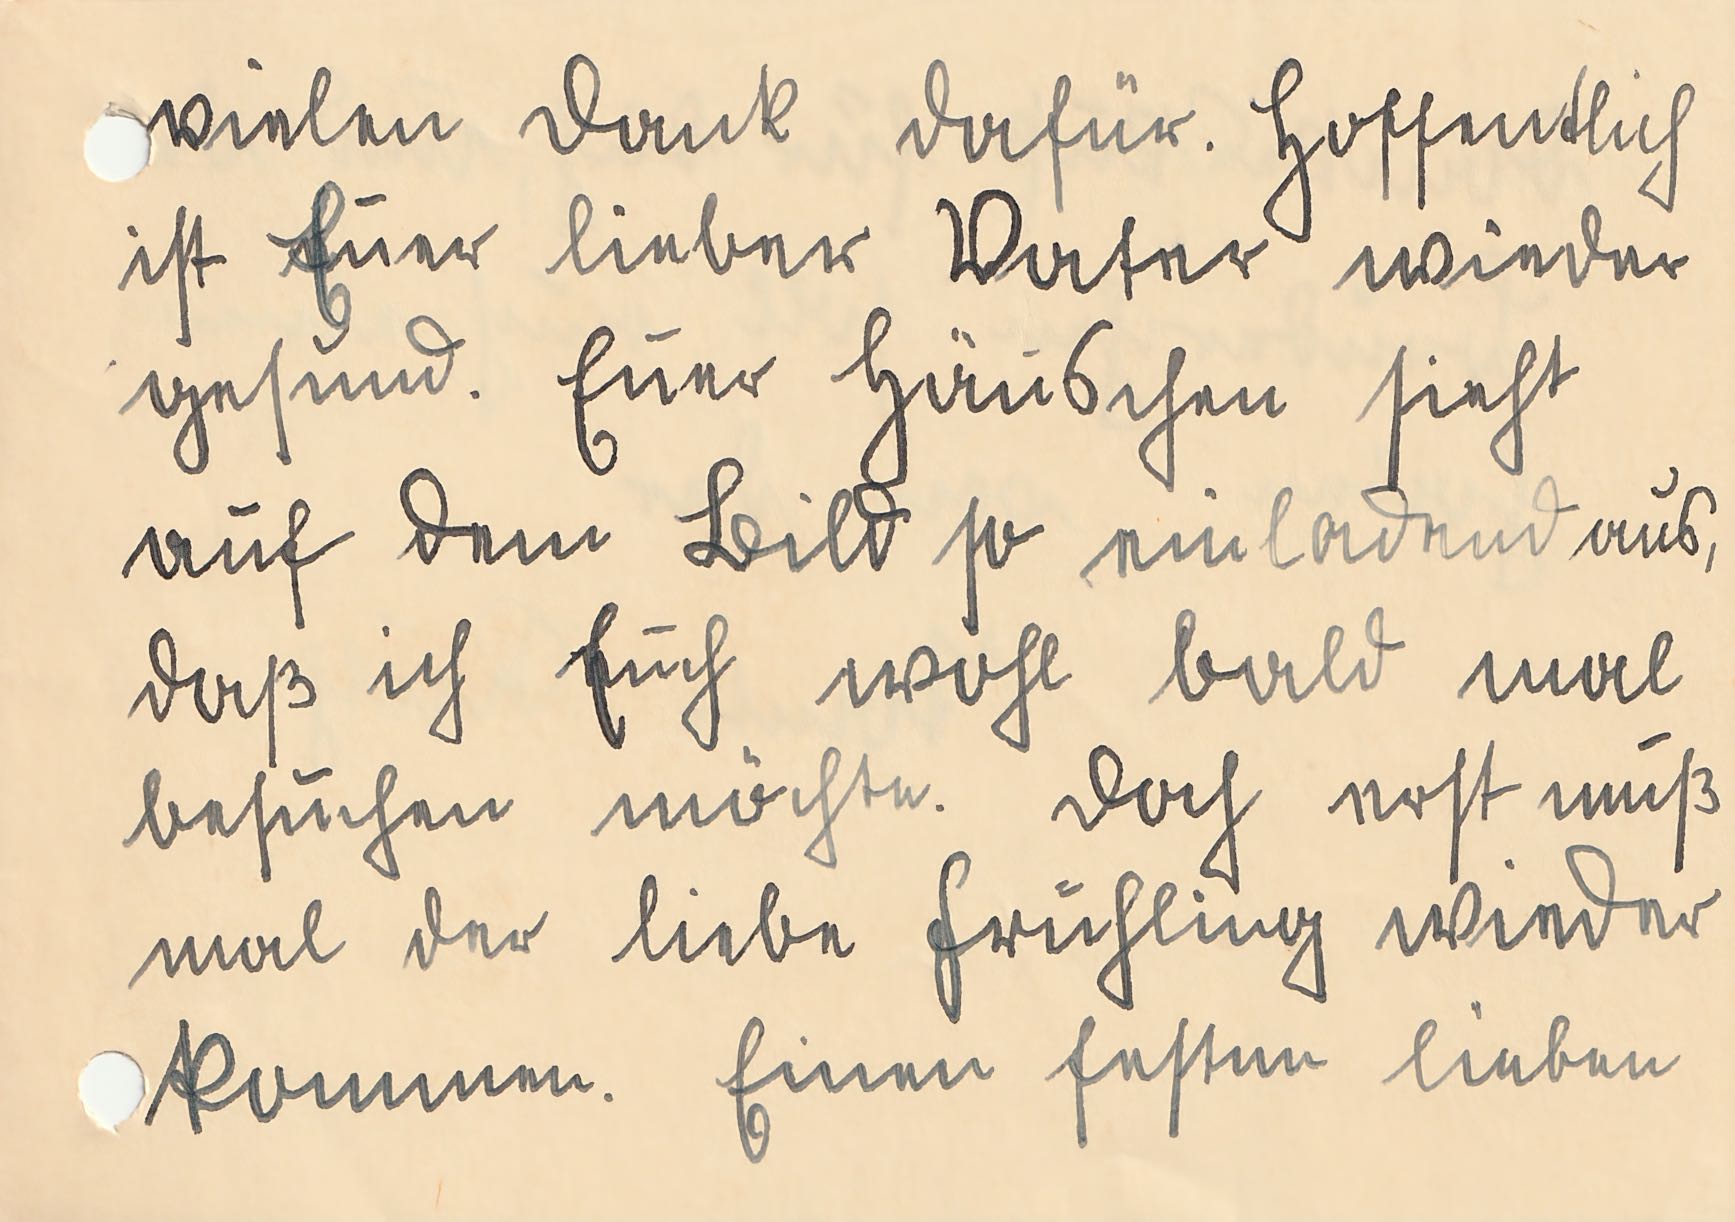 vielen Dank dafür. Hoffentlich
ist Euer lieber Vater wieder
gesund. Euer Häuschen sieht
auf dem Bild so einladend aus,
daß ich Euch wohl bald mal
besuchen möchte. Doch erst muß
mal der liebe Frühling wieder
kommen. Einen festen lieben